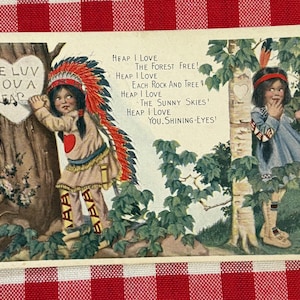 E LUV
OU A
Heap I Love
The Forest Free!
Heap I Love
Each Rock And Tree!
Heap I Love
The Sunny Skies!
Heap I Love
You, Shining-Eyes!